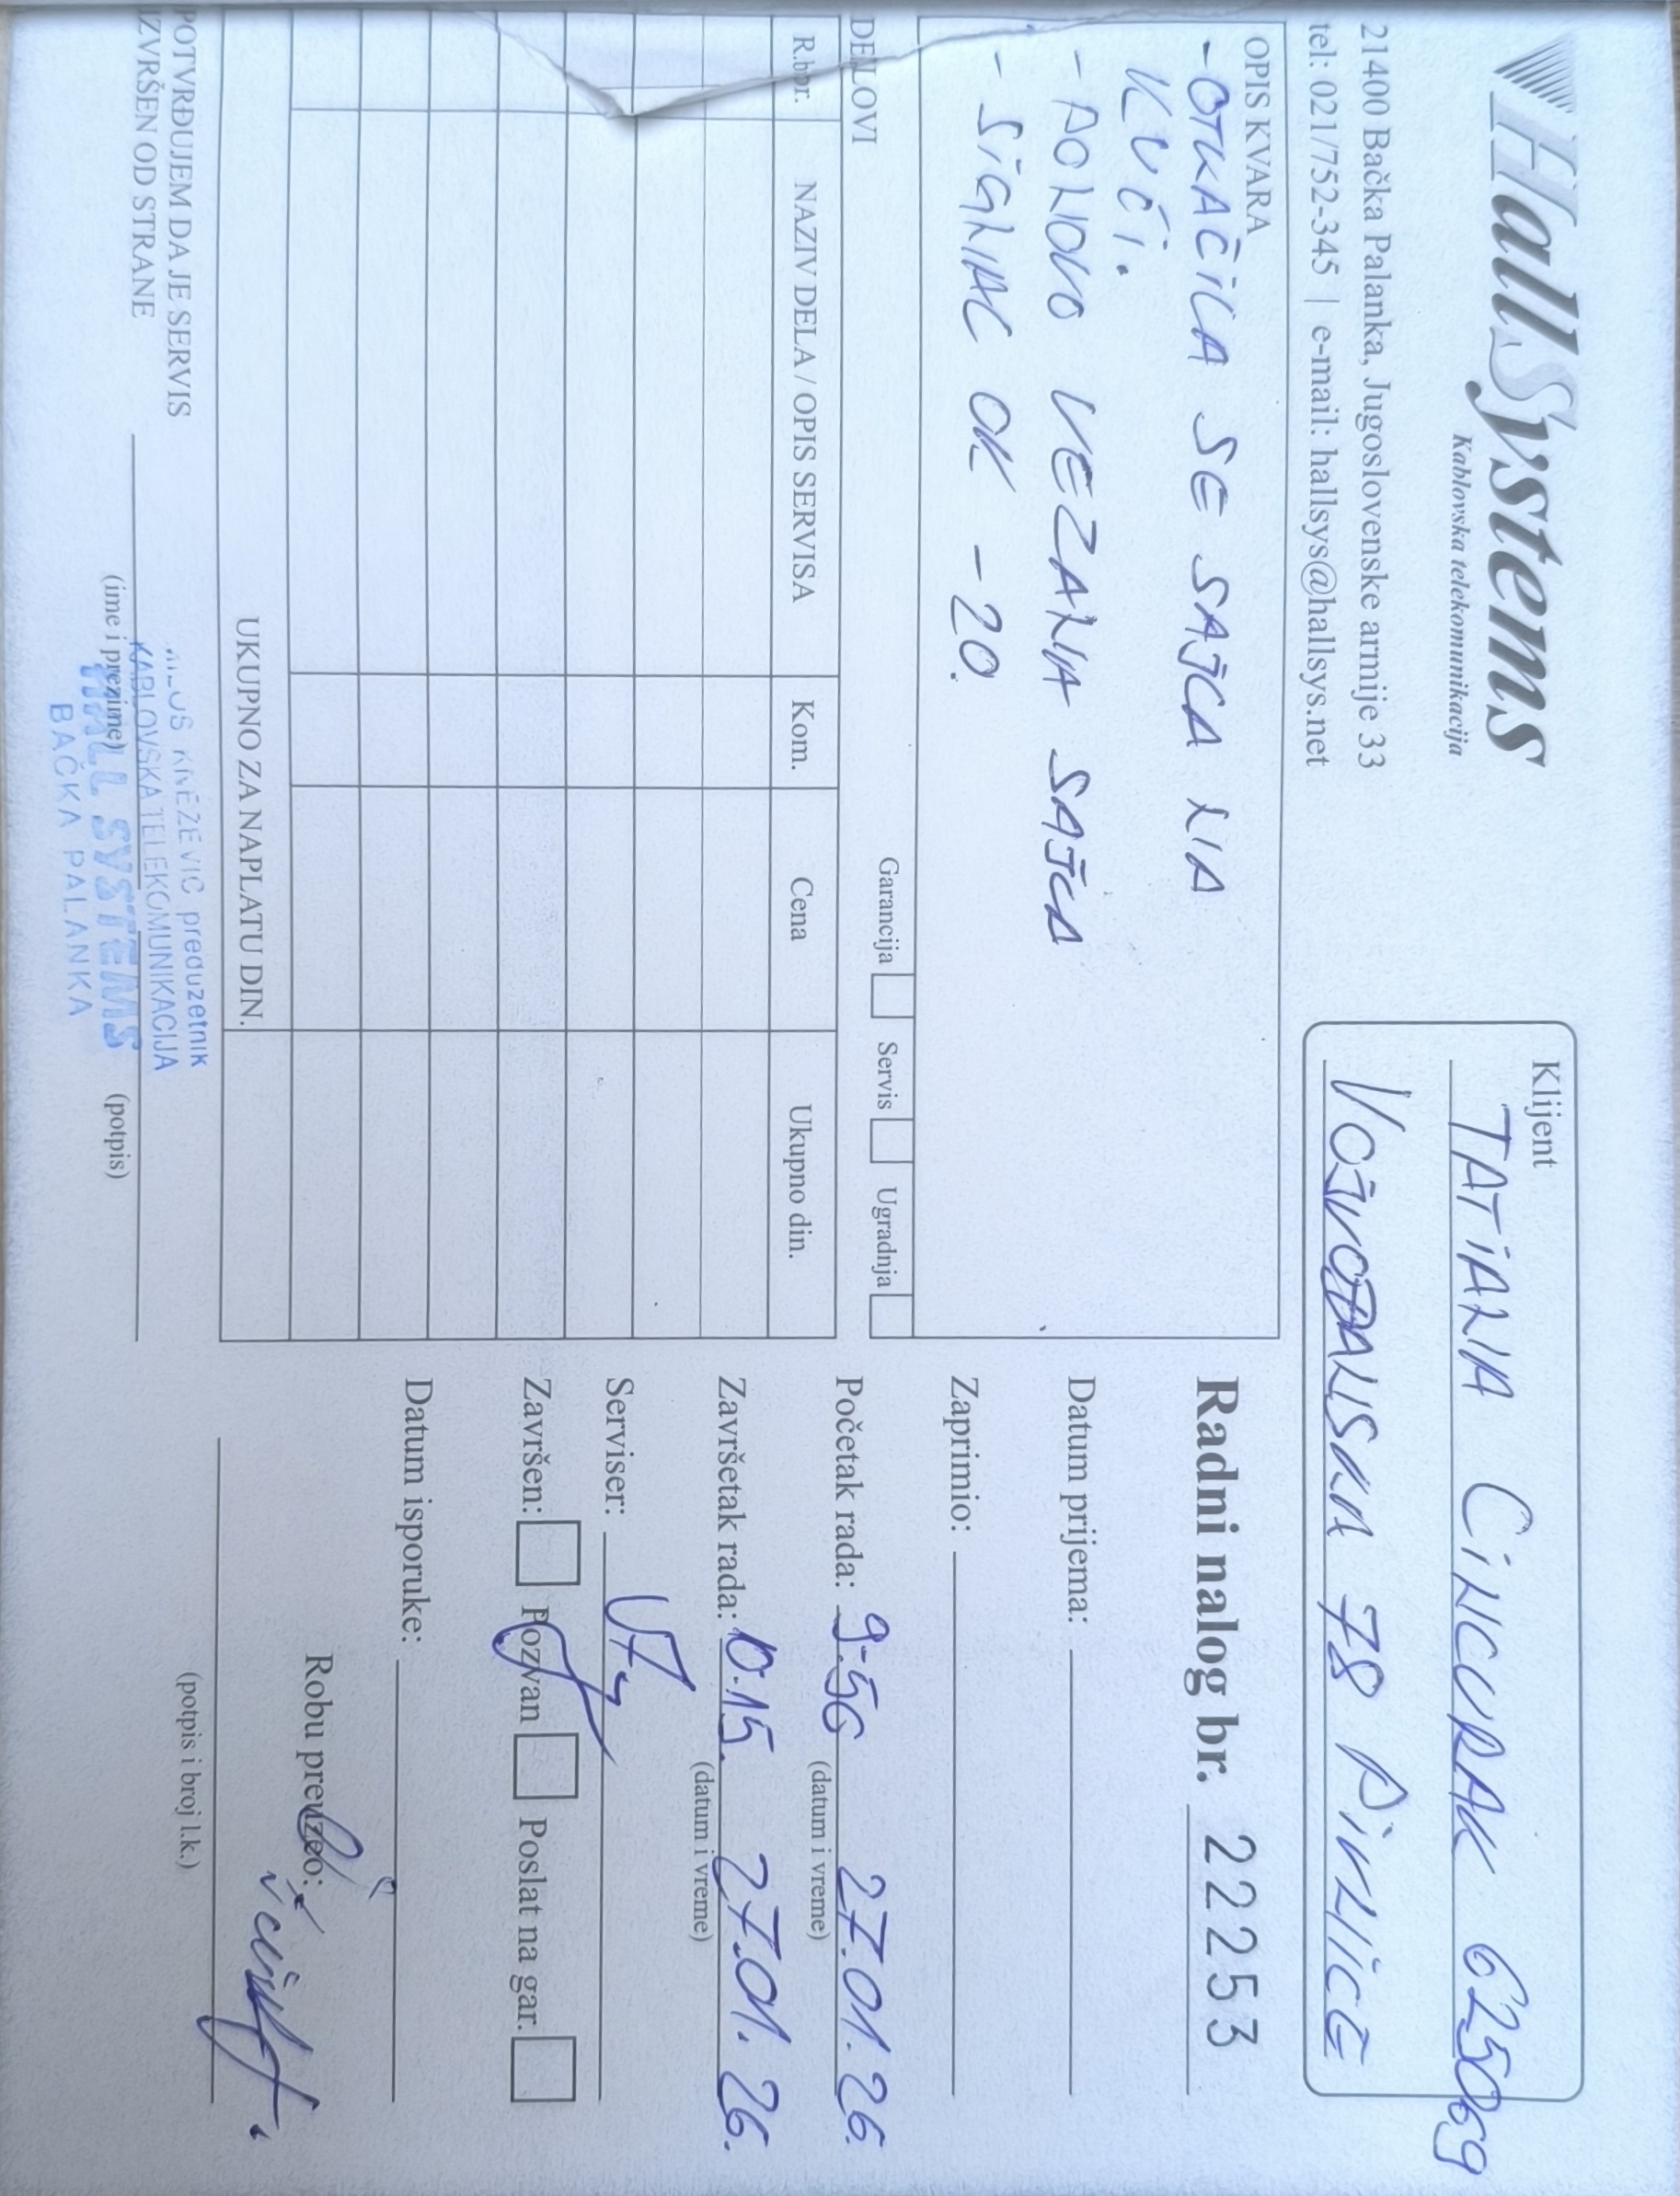 HallSystems
Kablovska telekomunikacija
21400 Bačka Palanka, Jugoslovenske armije 33
tel: 021/752-345 | e-mail: hallsys@hallsys.net
Klijent
TATIANA CINCURAK 625069
VOJVOĐANSKA 78 PIVNICE
OPIS KVARA
- OTKAČILA SE SAJLA NA
KUĆI.
- PONOVO VEZANA SAJLA
- SIGNAL OK -20.
Garancija Servis Ugradnja
DELOVI
R.br. NAZIV DELA / OPIS SERVISA Kom. Cena Ukupno din.
UKUPNO ZA NAPLATU DIN.
POTVRĐUJEM DA JE SERVIS
IZVRŠEN OD STRANE
(ime i prezime) (potpis)
KNEŽEVIĆ preduzetnik
KABLOVSKA TELEKOMUNIKACIJA
HALL SYSTEMS
BAČKA PALANKA
Radni nalog br. 22253
Datum prijema:
Zaprimio:
Početak rada: 9:56 27.01.26.
(datum i vreme)
Završetak rada: 10.15. 27.01.26.
(datum i vreme)
Serviser:
Završen: Pozvan Poslat na gar.
Datum isporuke:
Robu preuzeo:
(potpis i broj l.k.)